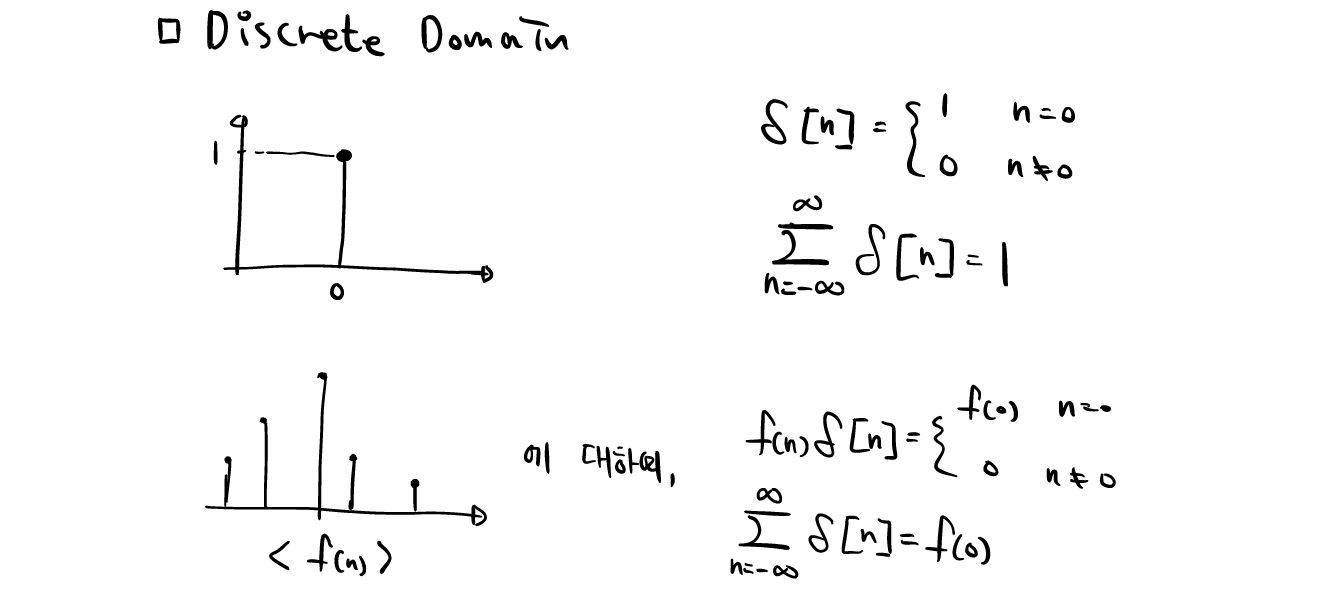 □ Discrete Domain
1
0
δ[n] = { 1 n=0
0 n≠0
∞
∑ δ[n] = 1
n=-∞
< f(n) >
에 대하여,
f(n)δ[n] = { f(0) n=0
0 n≠0
∞
∑ δ[n] = f(0)
n=-∞